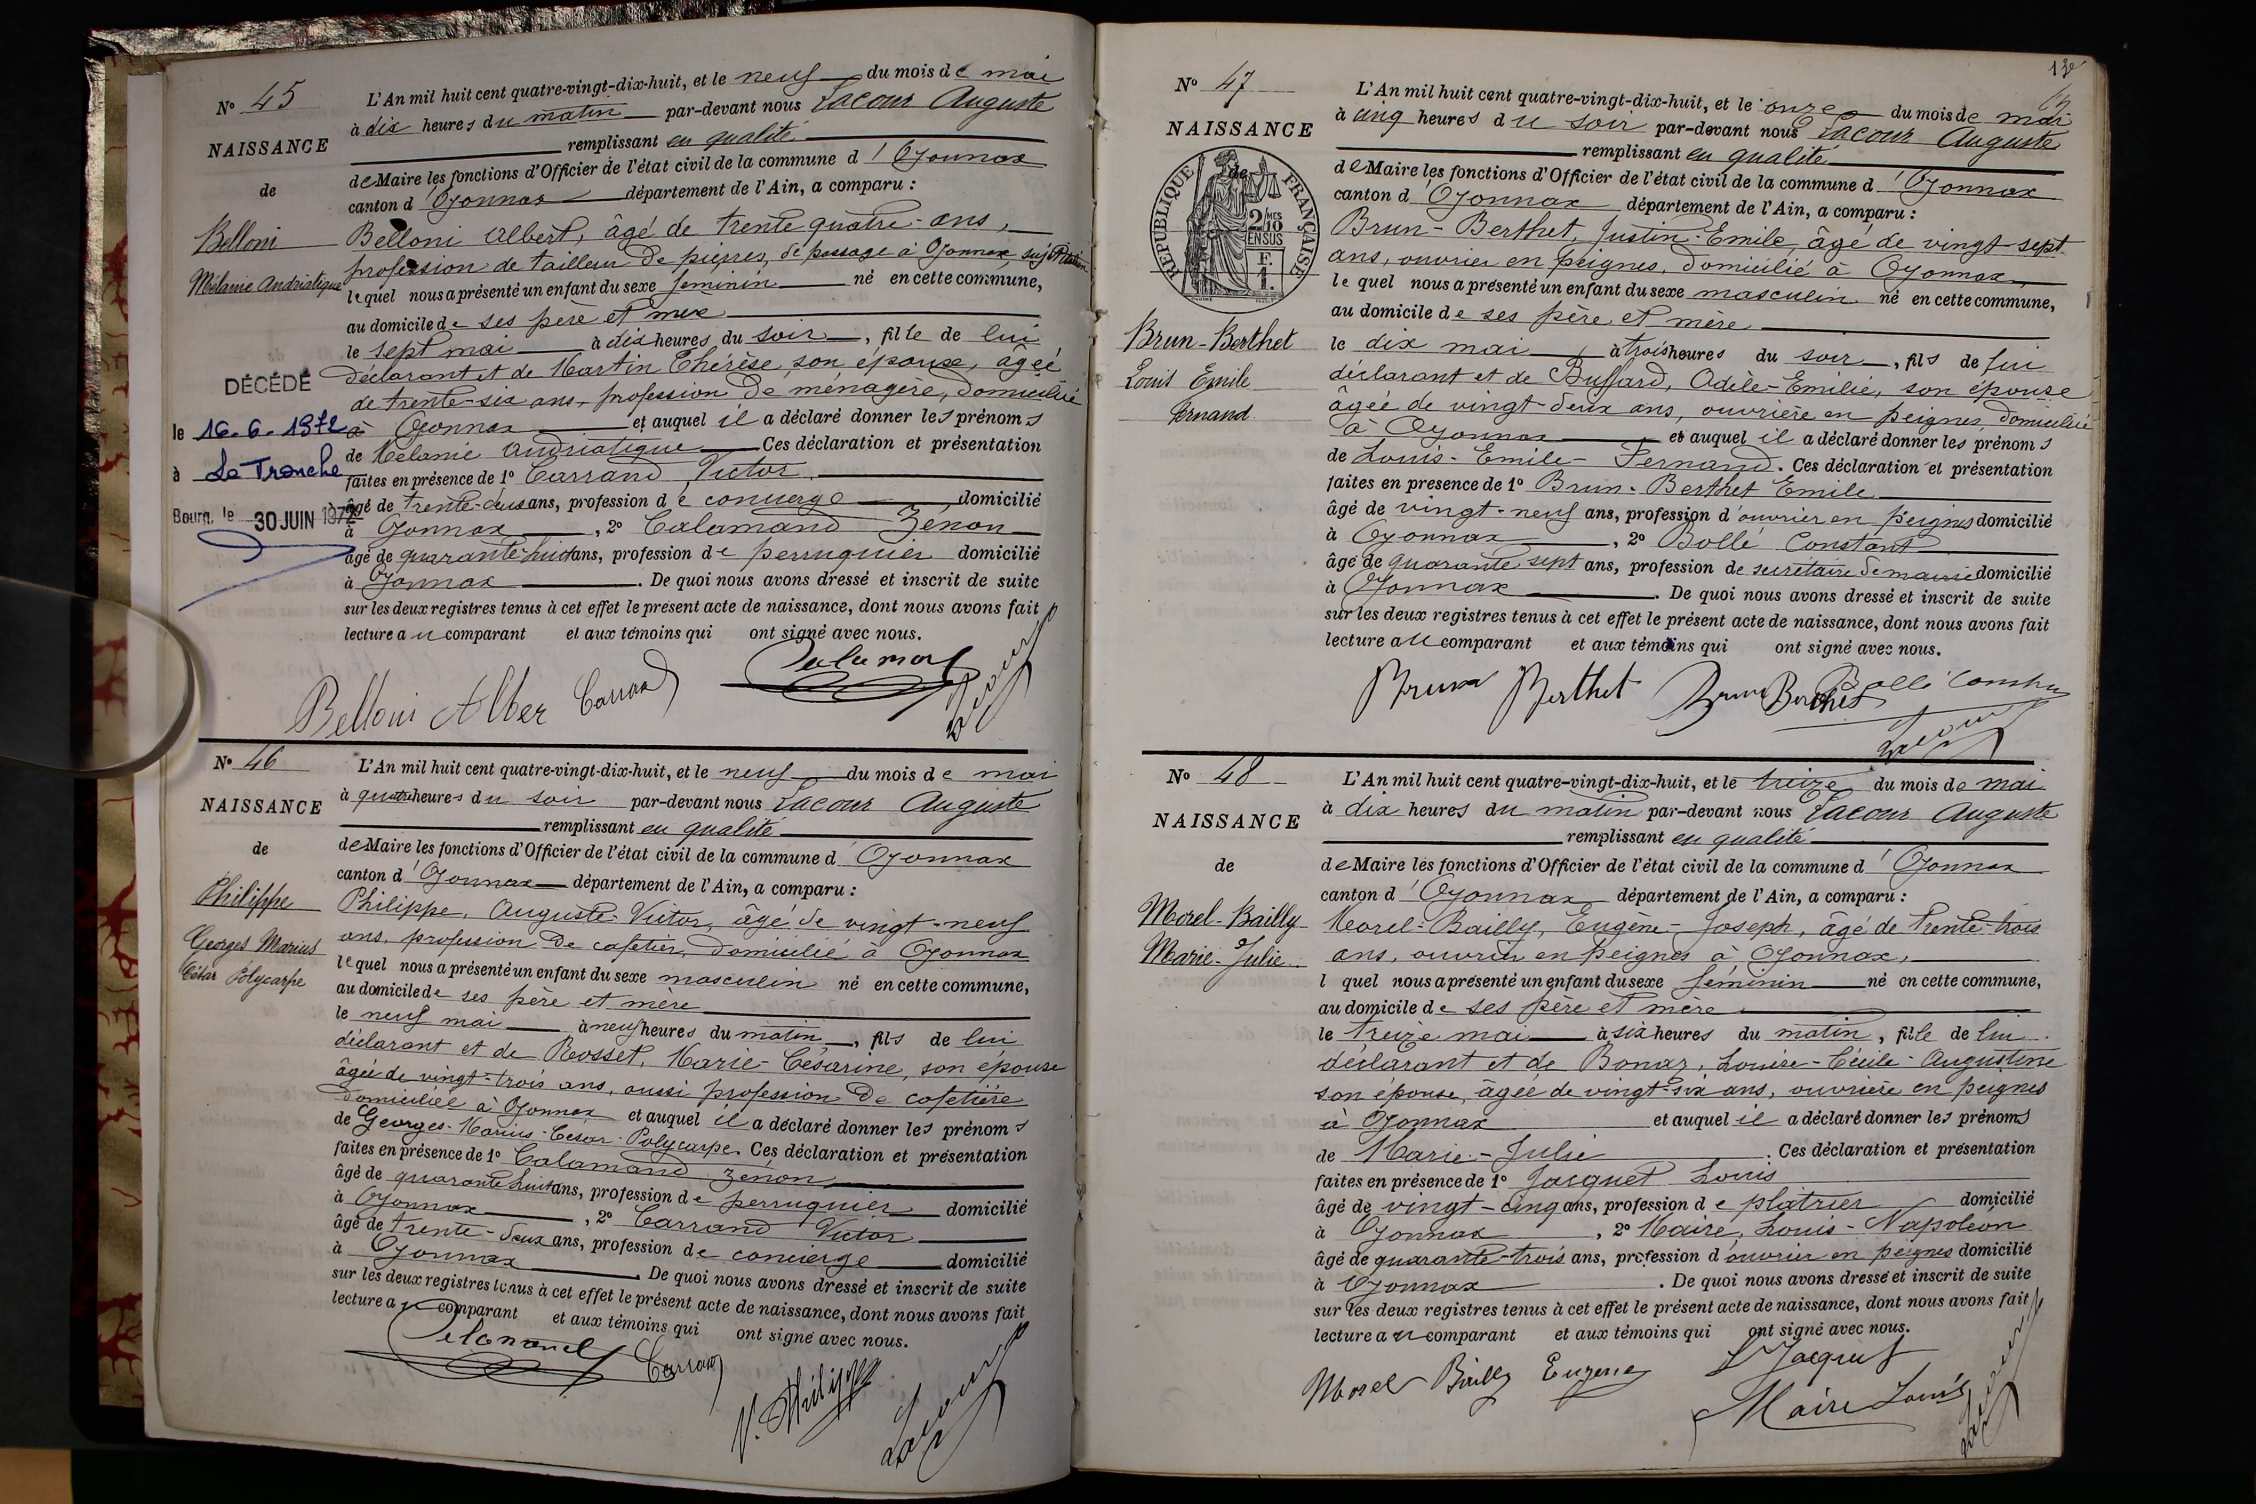 N° 45
NAISSANCE
de
Belloni
Mélanie Andriatique
DÉCÉDÉ
le 16.6.1972
à La Tronche
Bourg, le 30 JUIN 1972
L'An mil huit cent quatre-vingt-dix-huit, et le neuf du mois de mai
à dix heures du matin par-devant nous Lacour Auguste
remplissant en qualité
de Maire les fonctions d'Officier de l'état civil de la commune d'Oyonnax
canton d'Oyonnax département de l'Ain, a comparu :
Belloni Albert, âgé de trente quatre-ans,
profession de tailleur de pierres, de passage à Oyonnax, sujet
lequel nous a présenté un enfant du sexe féminin né en cette commune,
au domicile de ses père et mère
le sept mai à dix heures du soir, fille de lui
déclarant et de Martin Thérèse son épouse, âgée
de trente-six ans, profession de ménagère, domiciliée
à Oyonnax et auquel il a déclaré donner les prénoms
de Mélanie Andriatique Ces déclaration et présentation
faites en présence de 1° Carrand Victor
âgé de trente-deux ans, profession de concierge domicilié
à Oyonnax, 2° Calamand Zénon
âgé de quarante-huit ans, profession de perruquier domicilié
à Oyonnax. De quoi nous avons dressé et inscrit de suite
sur les deux registres tenus à cet effet le présent acte de naissance, dont nous avons fait
lecture au comparant et aux témoins qui ont signé avec nous.
Belloni Alber Carrand Calamand Lacour
N° 46
NAISSANCE
de
Philippe
Georges Marius
César Polycarpe
L'An mil huit cent quatre-vingt-dix-huit, et le neuf du mois de mai
à quatre heures du soir par-devant nous Lacour Auguste
remplissant en qualité
de Maire les fonctions d'Officier de l'état civil de la commune d'Oyonnax
canton d'Oyonnax département de l'Ain, a comparu :
Philippe, Auguste-Victor, âgé de vingt-neuf
ans, profession de cafetier, domicilié à Oyonnax
lequel nous a présenté un enfant du sexe masculin né en cette commune,
au domicile de ses père et mère
le neuf mai à neuf heures du matin, fils de lui
déclarant et de Rosset, Marie-Césarine, son épouse
âgée de vingt-trois ans, aussi profession de cafetière
domiciliée à Oyonnax et auquel il a déclaré donner les prénoms
de Georges-Marius-César-Polycarpe. Ces déclaration et présentation
faites en présence de 1° Calamand Zénon
âgé de quarante huit ans, profession de perruquier domicilié
à Oyonnax, 2° Carrand Victor
âgé de trente-deux ans, profession de concierge domicilié
à Oyonnax. De quoi nous avons dressé et inscrit de suite
sur les deux registres tenus à cet effet le présent acte de naissance, dont nous avons fait
lecture au comparant et aux témoins qui ont signé avec nous.
Calamand Carrand V. Philippe Lacour
13
N° 47
NAISSANCE
de
RÉPUBLIQUE FRANÇAISE
2/10 MES
EN SUS
Brun-Berthet
Louis Emile
Fernand
L'An mil huit cent quatre-vingt-dix-huit, et le onze du mois de mai
à cinq heures du soir par-devant nous Lacour Auguste
remplissant en qualité
de Maire les fonctions d'Officier de l'état civil de la commune d'Oyonnax
canton d'Oyonnax département de l'Ain, a comparu :
Brun-Berthet, Justin-Emile, âgé de vingt-sept
ans, ouvrier en peignes, domicilié à Oyonnax,
lequel nous a présenté un enfant du sexe masculin né en cette commune,
au domicile de ses père et mère
le dix mai à trois heures du soir, fils de lui
déclarant et de Buffard, Adèle-Emilie, son épouse
âgée de vingt-deux ans, ouvrière en peignes, domiciliée
à Oyonnax et auquel il a déclaré donner les prénoms
de Louis-Emile-Fernand. Ces déclaration et présentation
faites en présence de 1° Brun-Berthet Emile
âgé de vingt-neuf ans, profession d'ouvrier en peignes domicilié
à Oyonnax, 2° Bollé Constant
âgé de quarante sept ans, profession de secrétaire de mairie domicilié
à Oyonnax. De quoi nous avons dressé et inscrit de suite
sur les deux registres tenus à cet effet le présent acte de naissance, dont nous avons fait
lecture au comparant et aux témoins qui ont signé avec nous.
Brun Berthet Brun Berthet Bollé Constant
Lacour
N° 48
NAISSANCE
de
Morel-Bailly
Marie-Julie
L'An mil huit cent quatre-vingt-dix-huit, et le treize du mois de mai
à dix heures du matin par-devant nous Lacour Auguste
remplissant en qualité
de Maire les fonctions d'Officier de l'état civil de la commune d'Oyonnax
canton d'Oyonnax département de l'Ain, a comparu :
Morel-Bailly, Eugène-Joseph, âgé de trente-trois
ans, ouvrier en peignes à Oyonnax,
l quel nous a présenté un enfant du sexe féminin né en cette commune,
au domicile de ses père et mère
le treize mai à six heures du matin, fille de lui
déclarant et de Bonaz, Louise-Cécile-Augustine
son épouse, âgée de vingt-six ans, ouvrière en peignes
à Oyonnax et auquel il a déclaré donner les prénoms
de Marie-Julie. Ces déclaration et présentation
faites en présence de 1° Jacquet Louis
âgé de vingt-cinq ans, profession de plâtrier domicilié
à Oyonnax, 2° Maire, Louis-Napoléon
âgé de quarante-trois ans, profession d'ouvrier en peignes domicilié
à Oyonnax. De quoi nous avons dressé et inscrit de suite
sur les deux registres tenus à cet effet le présent acte de naissance, dont nous avons fait
lecture au comparant et aux témoins qui ont signé avec nous.
Morel Bailly Eugene L Jacquet
Maire Louis Lacour